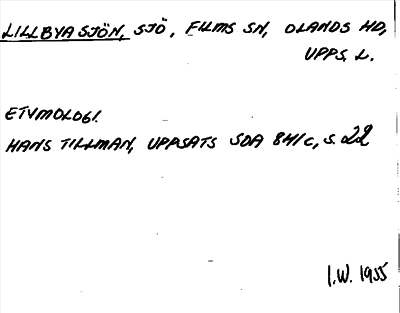 LILLBYASJÖN, SJÖ, FILMS SN, OLANDS HD,
UPPS. L.
ETYMOLOGI.
HANS TILLMAN, UPPSATS SOA 841c, S. 22
I.W. 1955